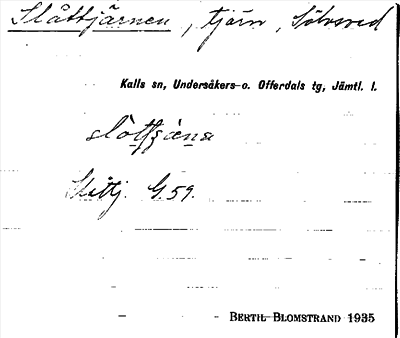 Slåttjärnen, tjärn, Sölvsved
Kalls sn, Undersåkers o. Offerdals tg, Jämtl. l.
G.59.
BERTIL BLOMSTRAND 1935